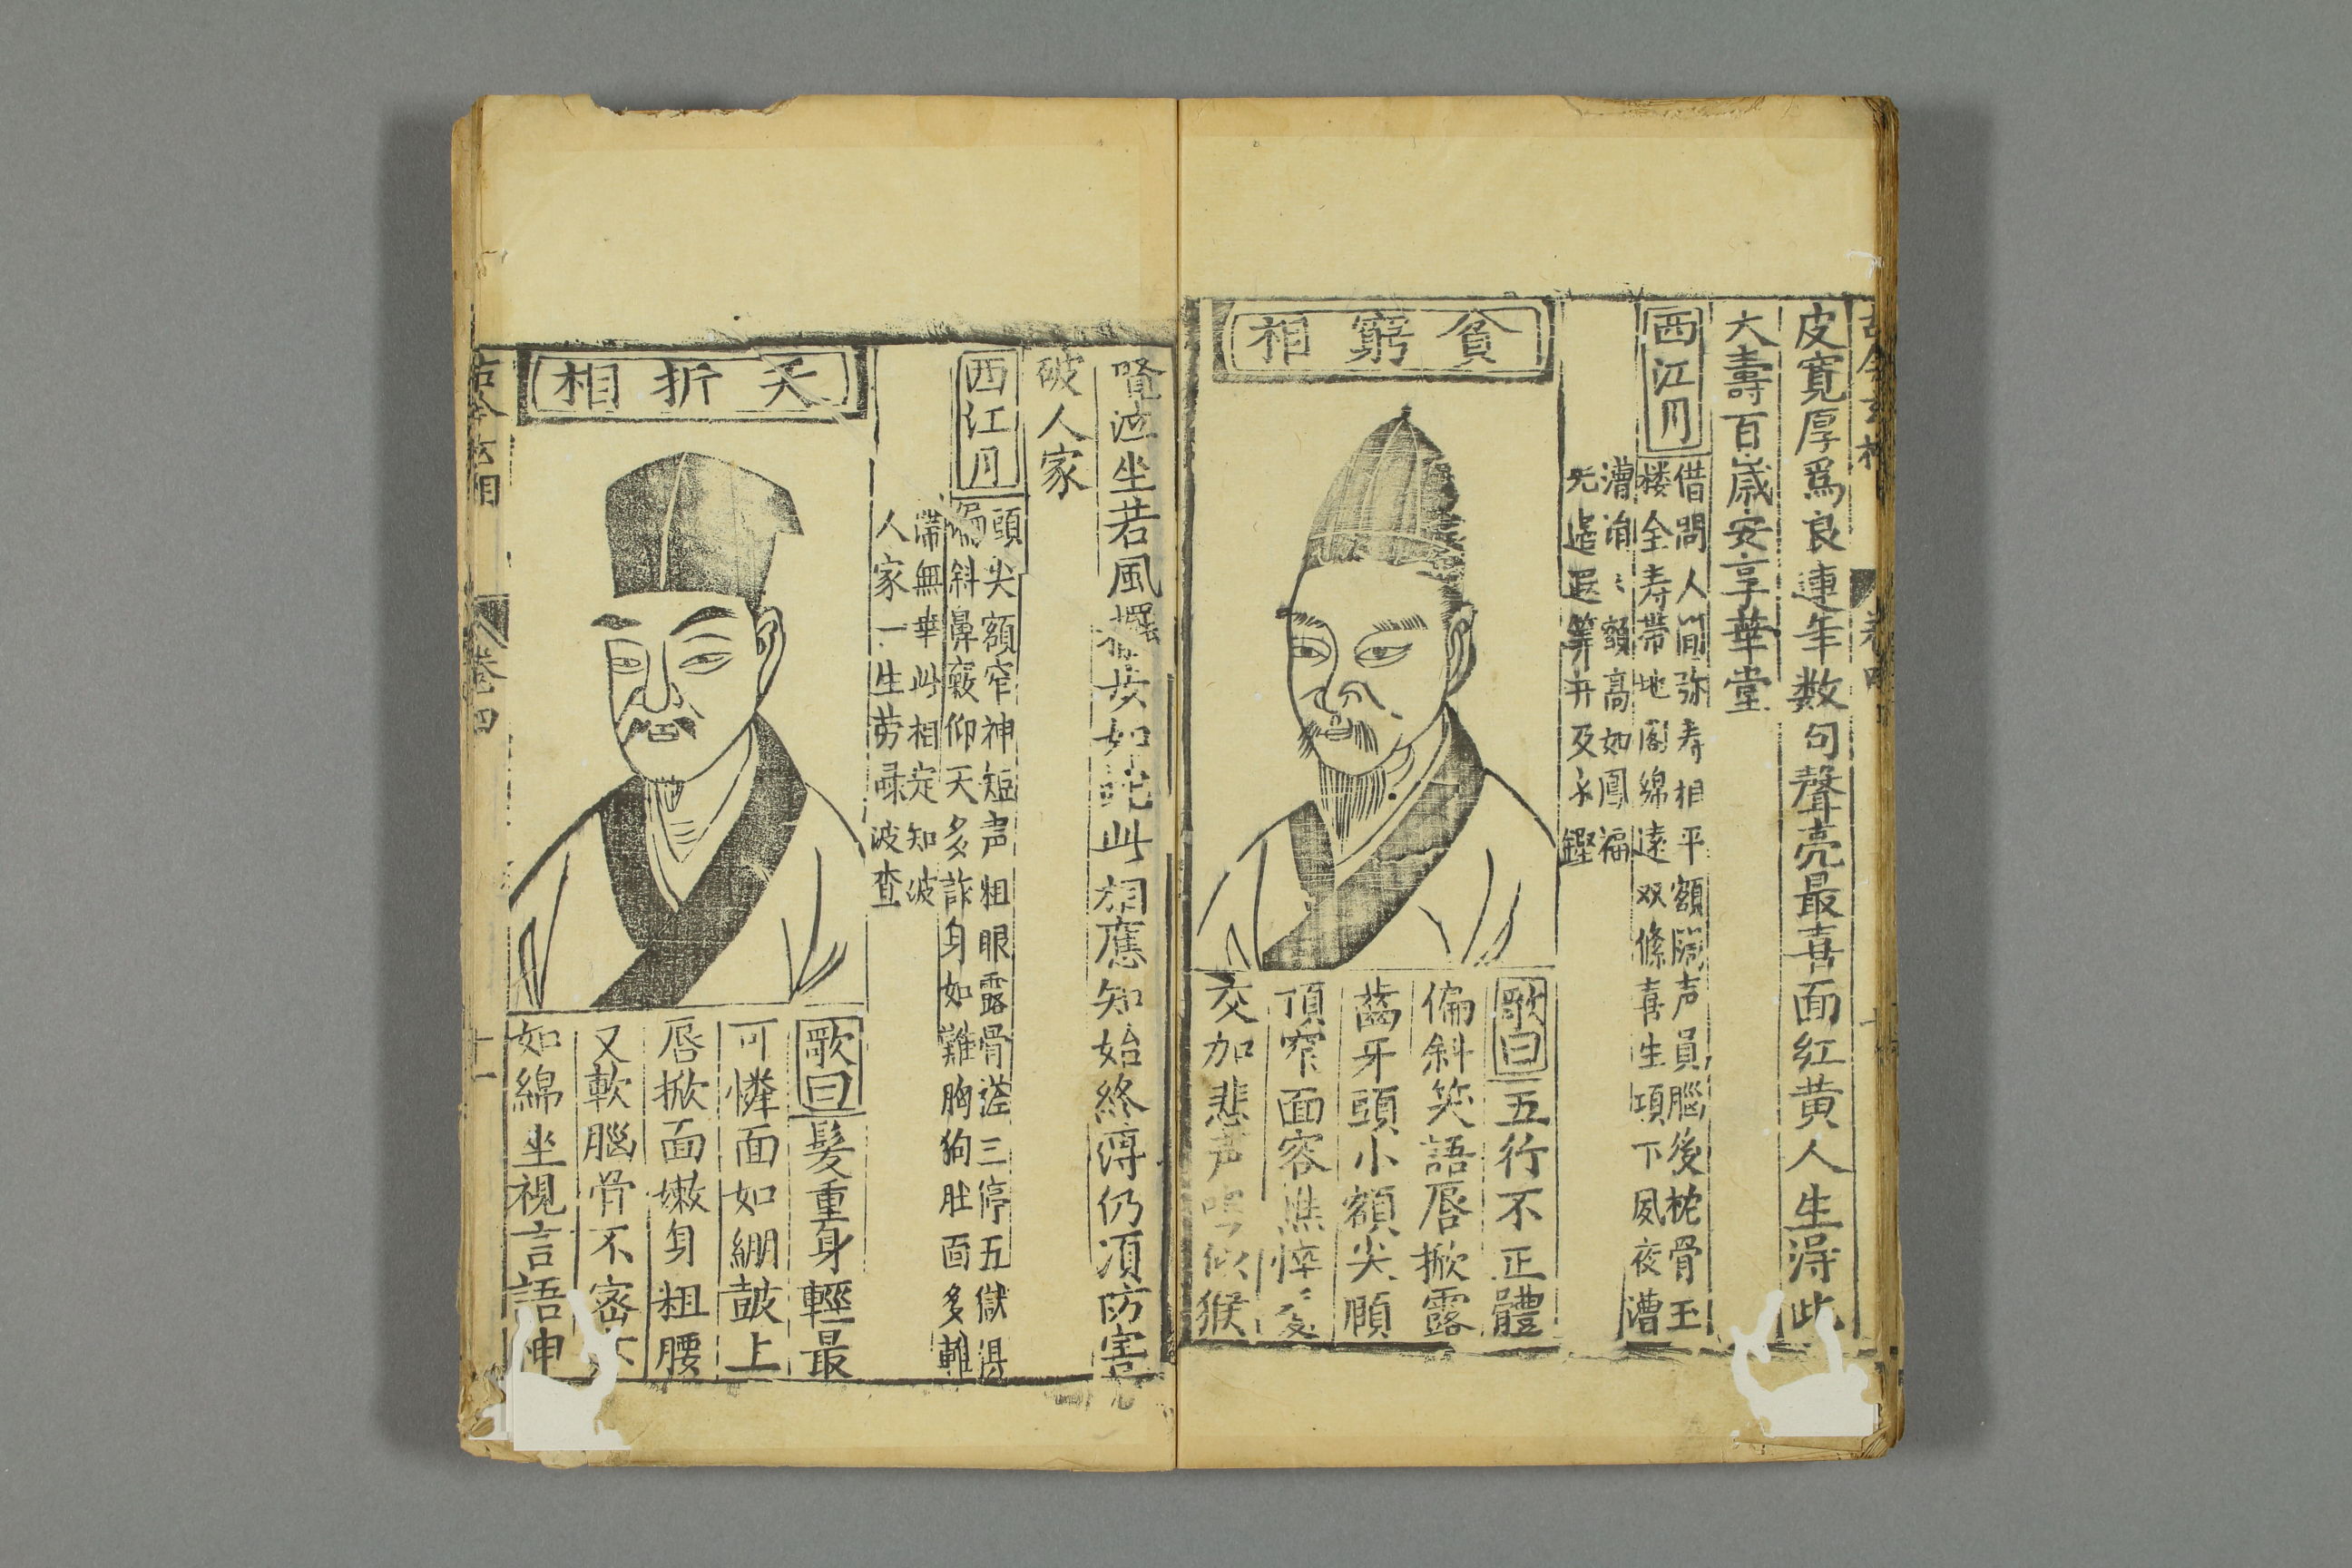 古今玄相
卷四
皮寬厚爲良連年数句聲亮最喜面红黄人生得此
大壽百歲安享華堂
西江月
借問人间弥寿相平額闊声員腦後枕骨玉
楼全寿帶地阁綿遠双條喜生項下夙夜漕
漕消〻額高如鳳福
貧窮相
歌曰五行不正體
偏斜笑語唇掀露
齒牙頭小額尖頤
頂窄面容憔悴
交加悲声似猴
坐若風擺如此相應知始終薄仍湏防害
破人家
西江月
頭尖額窄神短声粗眼露骨三停五獄
偏斜鼻竅仰天多詐身如雞胸狗肚面多
滯無華此相定知波
人家一生劳碌波查
夭折相
歌曰髮重身輕最
可憐面如綳皷上
唇掀面嫩身粗腰
又軟腦骨不密
如綿坐視言語神
古今玄相
卷四
十一